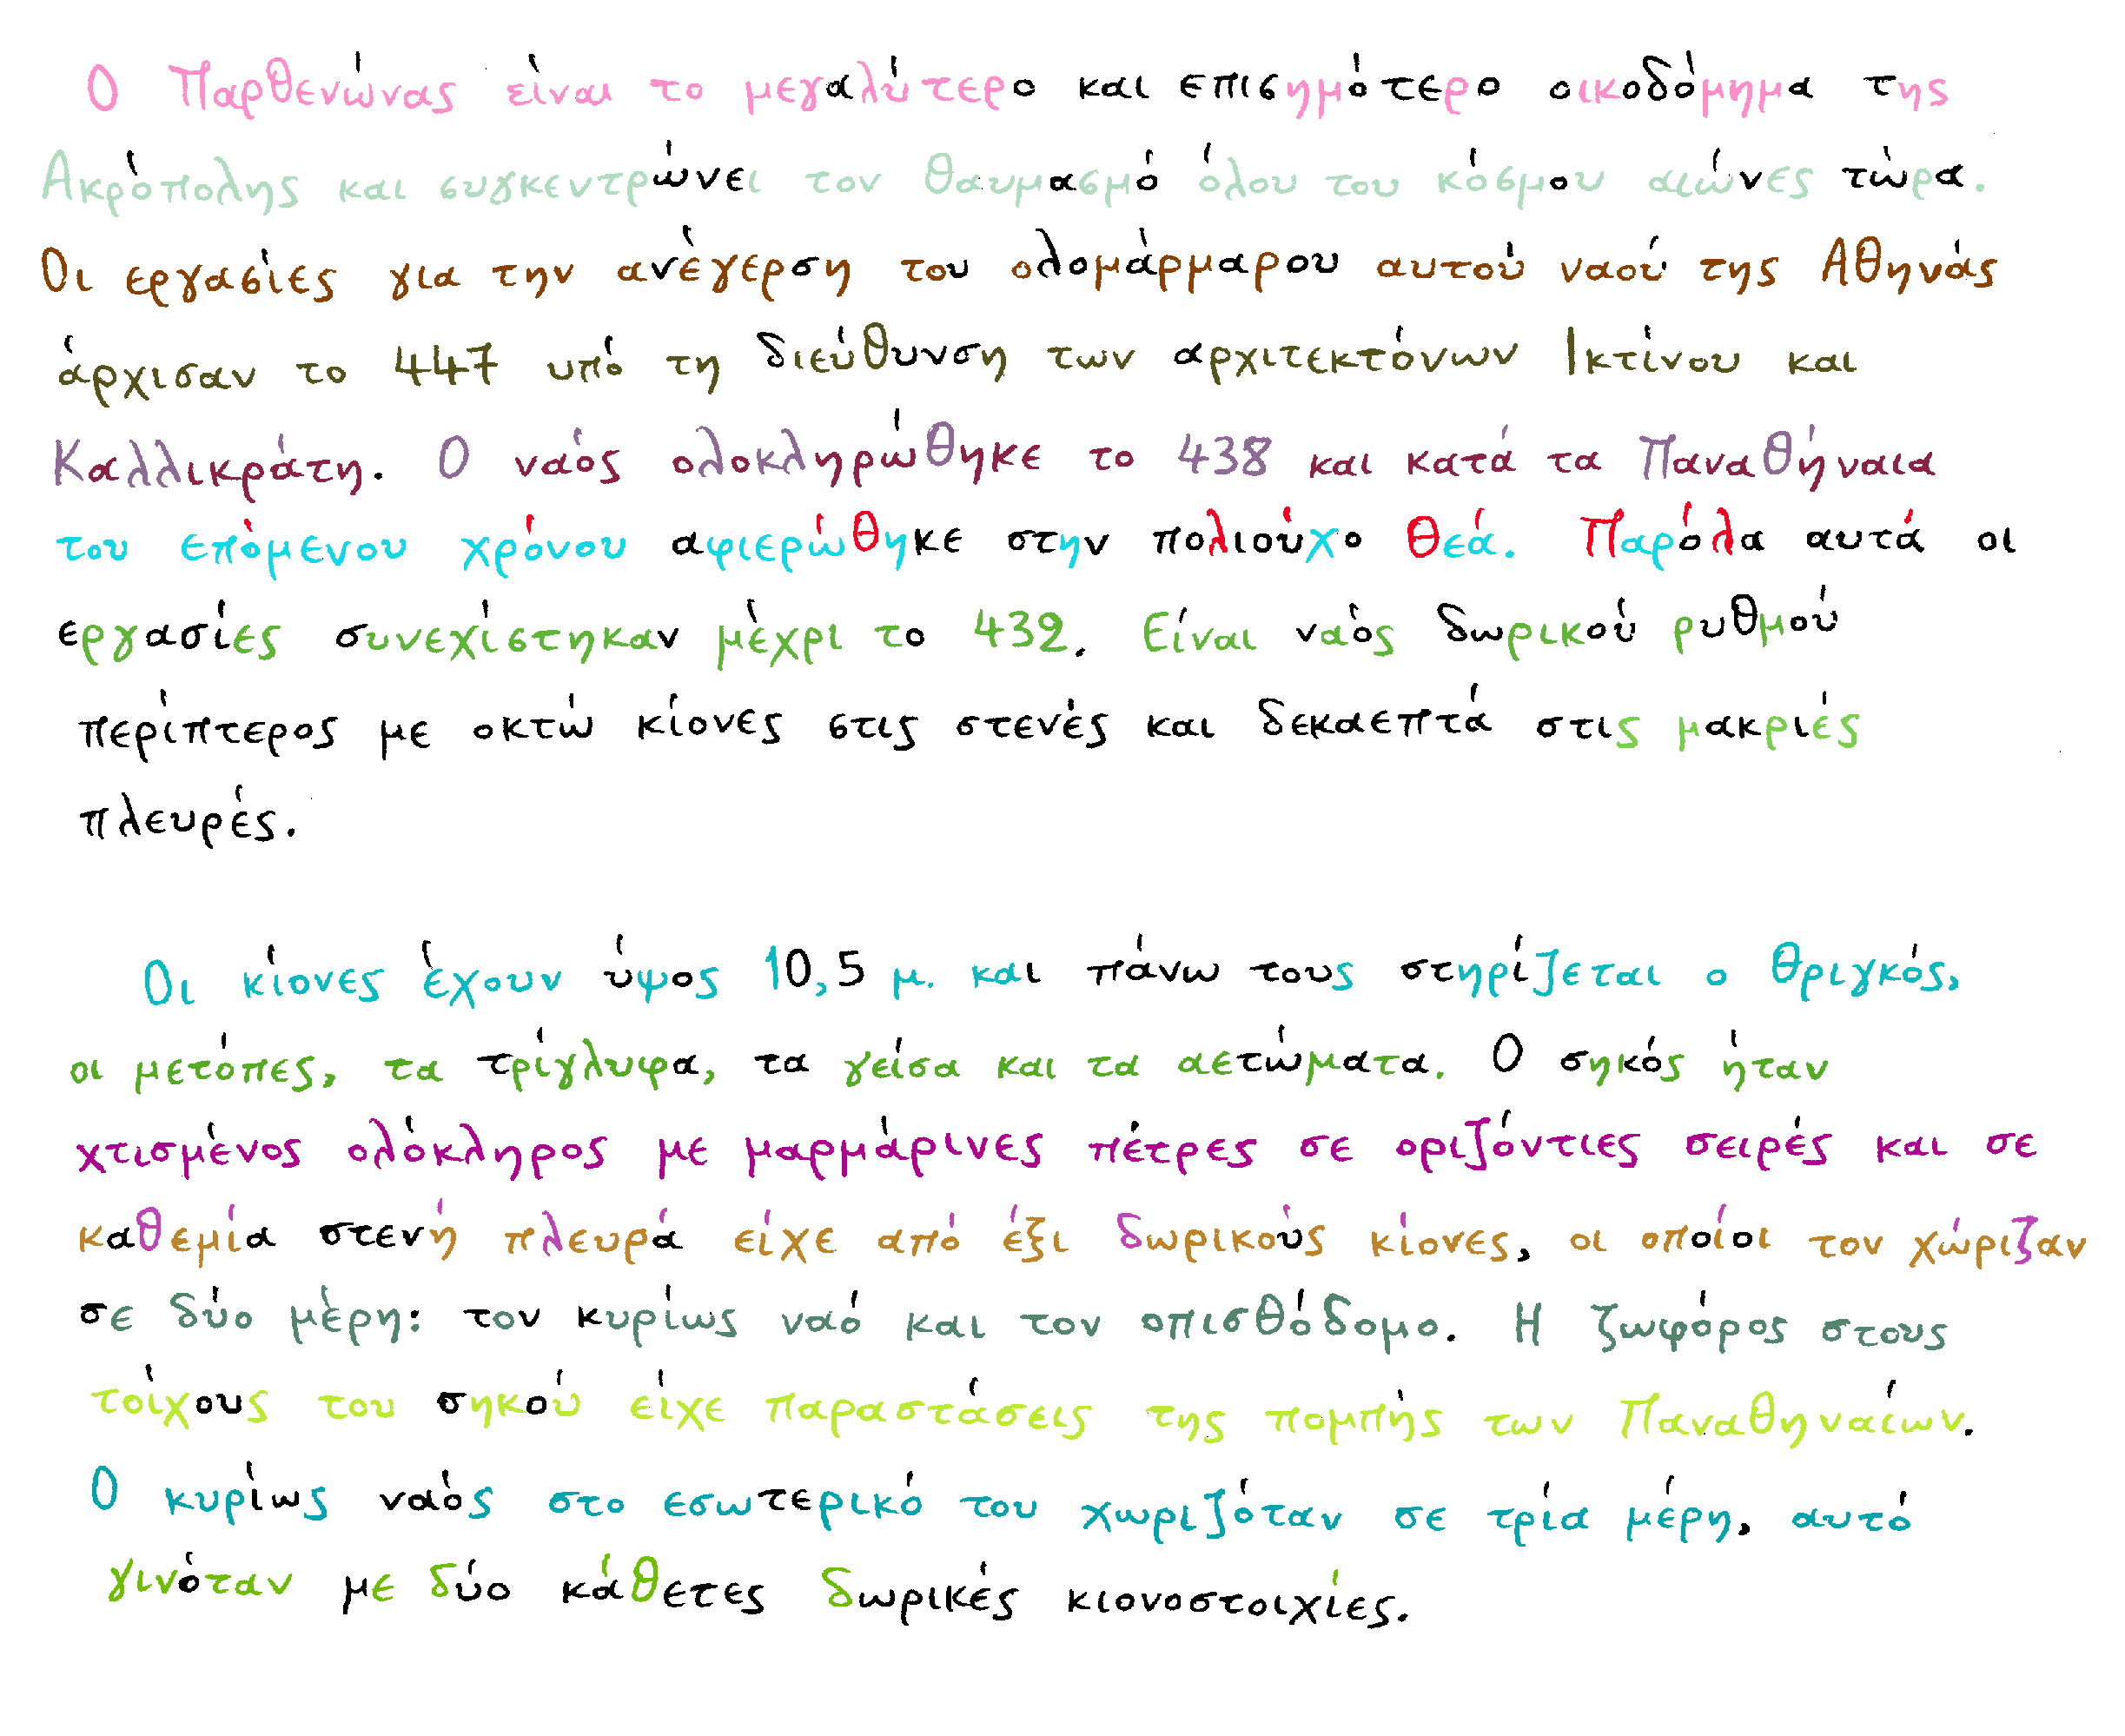 Ο Παρθενώνας είναι το μεγαλύτερο και επισημότερο οικοδόμημα της
Ακρόπολης και συγκεντρώνει τον θαυμασμό όλου του κόσμου αιώνες τώρα.
Οι εργασίες για την ανέγερση του ολομάρμαρου αυτού ναού της Αθηνάς
άρχισαν το 447 υπό τη διεύθυνση των αρχιτεκτόνων Ικτίνου και
Καλλικράτη. Ο ναός ολοκληρώθηκε το 438 και κατά τα Παναθήναια
του επόμενου χρόνου αφιερώθηκε στην πολιούχο Θεά. Παρόλα αυτά οι
εργασίες συνεχίστηκαν μέχρι το 432. Είναι ναός δωρικού ρυθμού
περίπτερος με οκτώ κίονες στις στενές και δεκαεπτά στις μακριές
πλευρές.
Οι κίονες έχουν ύψος 10,5 μ. και πάνω τους στηρίζεται ο θριγκός,
οι μετόπες, τα τρίγλυφα, τα γείσα και τα αετώματα. Ο σηκός ήταν
χτισμένος ολόκληρος με μαρμάρινες πέτρες σε οριζόντιες σειρές και σε
καθεμία στενή πλευρά είχε από έξι δωρικούς κίονες, οι οποίοι τον χώριζαν
σε δύο μέρη: τον κυρίως ναό και τον οπισθόδομο. Η ζωφόρος στους
τοίχους του σηκού είχε παραστάσεις της πομπής των Παναθηναίων.
Ο κυρίως ναός στο εσωτερικό του χωριζόταν σε τρία μέρη, αυτό
γινόταν με δύο κάθετες δωρικές κιονοστοιχίες.